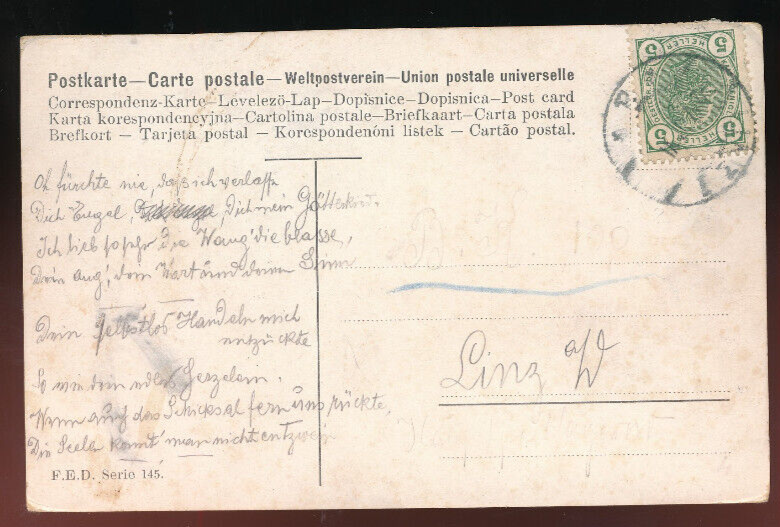 Postkarte—Carte postale—Weltpostverein—Union postale universelle
Correspondenz-Karte—Levelezö-Lap—Dopisnice—Dopisnica—Post card
Karta korespondencyjna—Cartolina postale—Briefkaart—Carta postala
Brefkort — Tarjeta postal — Korespondenóni listek — Cartão postal.
5 HELLER 5
5 HELLER 5
Oh fürchte nie, daß ich verlasse
Dich Engel, Dich mein
Ich lieb so sehr die Wang' die blasse,
Dein Aug', dein Wort und deinen Sinn
Dein selbstlos Handeln mich
entzückte
So wie dein edles
Wenn auch das Schicksal fern uns rückte,
Die Seelen konnt' man nicht entzwein
Linz a/D
F.E.D. Serie 145.